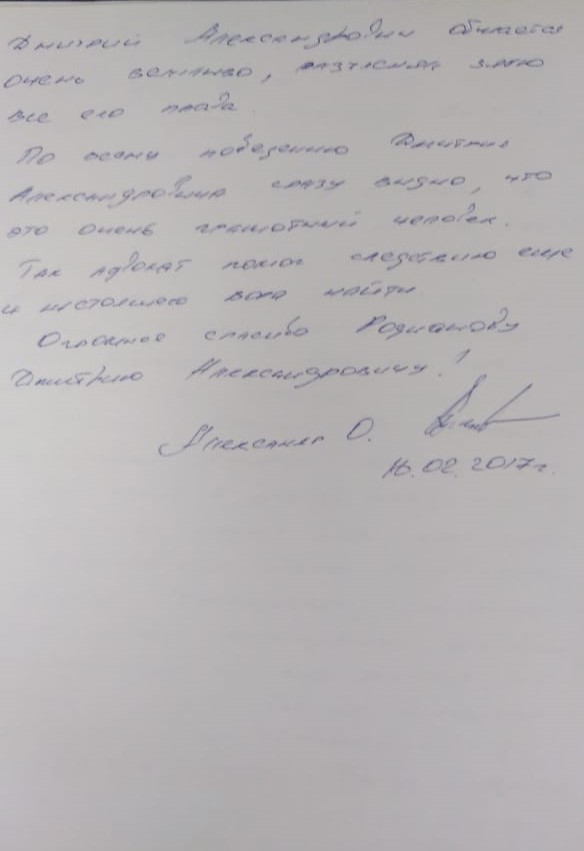 Дмитрий Александрович общается
очень вежливо, разъяснил
все его права.
По всему поведению Дмитрия
Александровича сразу видно, что
это очень грамотный человек.
Так адвокат помог следствию еще
и настоящего вора найти
Огромное спасибо Родианову
Дмитрию Александровичу!
Александр О.
.02.2017г.